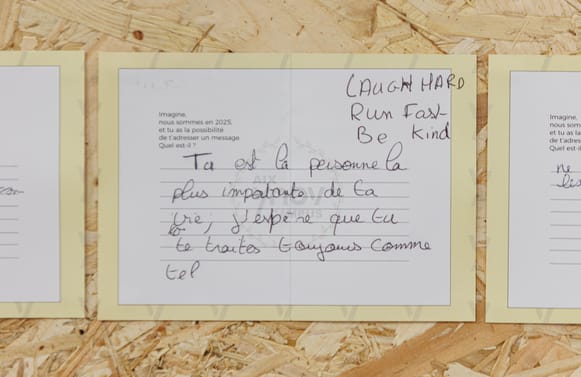 Imagine,
nous sommes en 2025,
et tu as la possibilité
de t'adresser un message.
Quel est-il ?
LAUGH HARD
Run Fast
Be Kind
Tu est la personne la
plus importante de ta
vie, j'espère que tu
te traites toujours comme
tel
Imagine,
nous somm
et tu as la
de t'adress
Quel est-il
ne